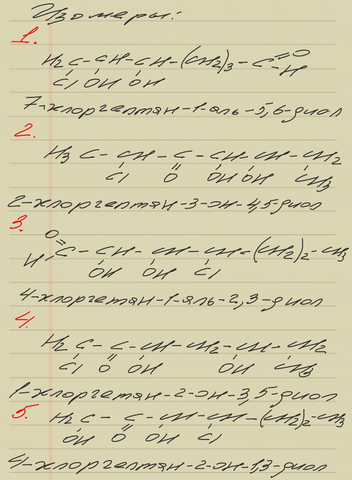 Изомеры:
1.
H₂C – CH – CH – (CH₂)₃ – C =O
Cl OH OH – H
7-хлоргептан-1-аль-5,6-диол
2.
H₃C – CH – C – CH – CH – CH₂
Cl O OH OH CH₃
2-хлоргептан-3-он-4,5-диол
3.
O
H C – CH – CH – CH – (CH₂)₂ – CH₃
OH OH Cl
4-хлоргептан-1-аль-2,3-диол
4.
H₂C – C – CH – CH₂ – CH – CH₂
Cl O OH OH CH₃
1-хлоргептан-2-он-3,5-диол
5. H₂C – C – CH – CH – (CH₂)₂ – CH₃
OH O OH Cl
4-хлоргептан-2-он-1,3-диол